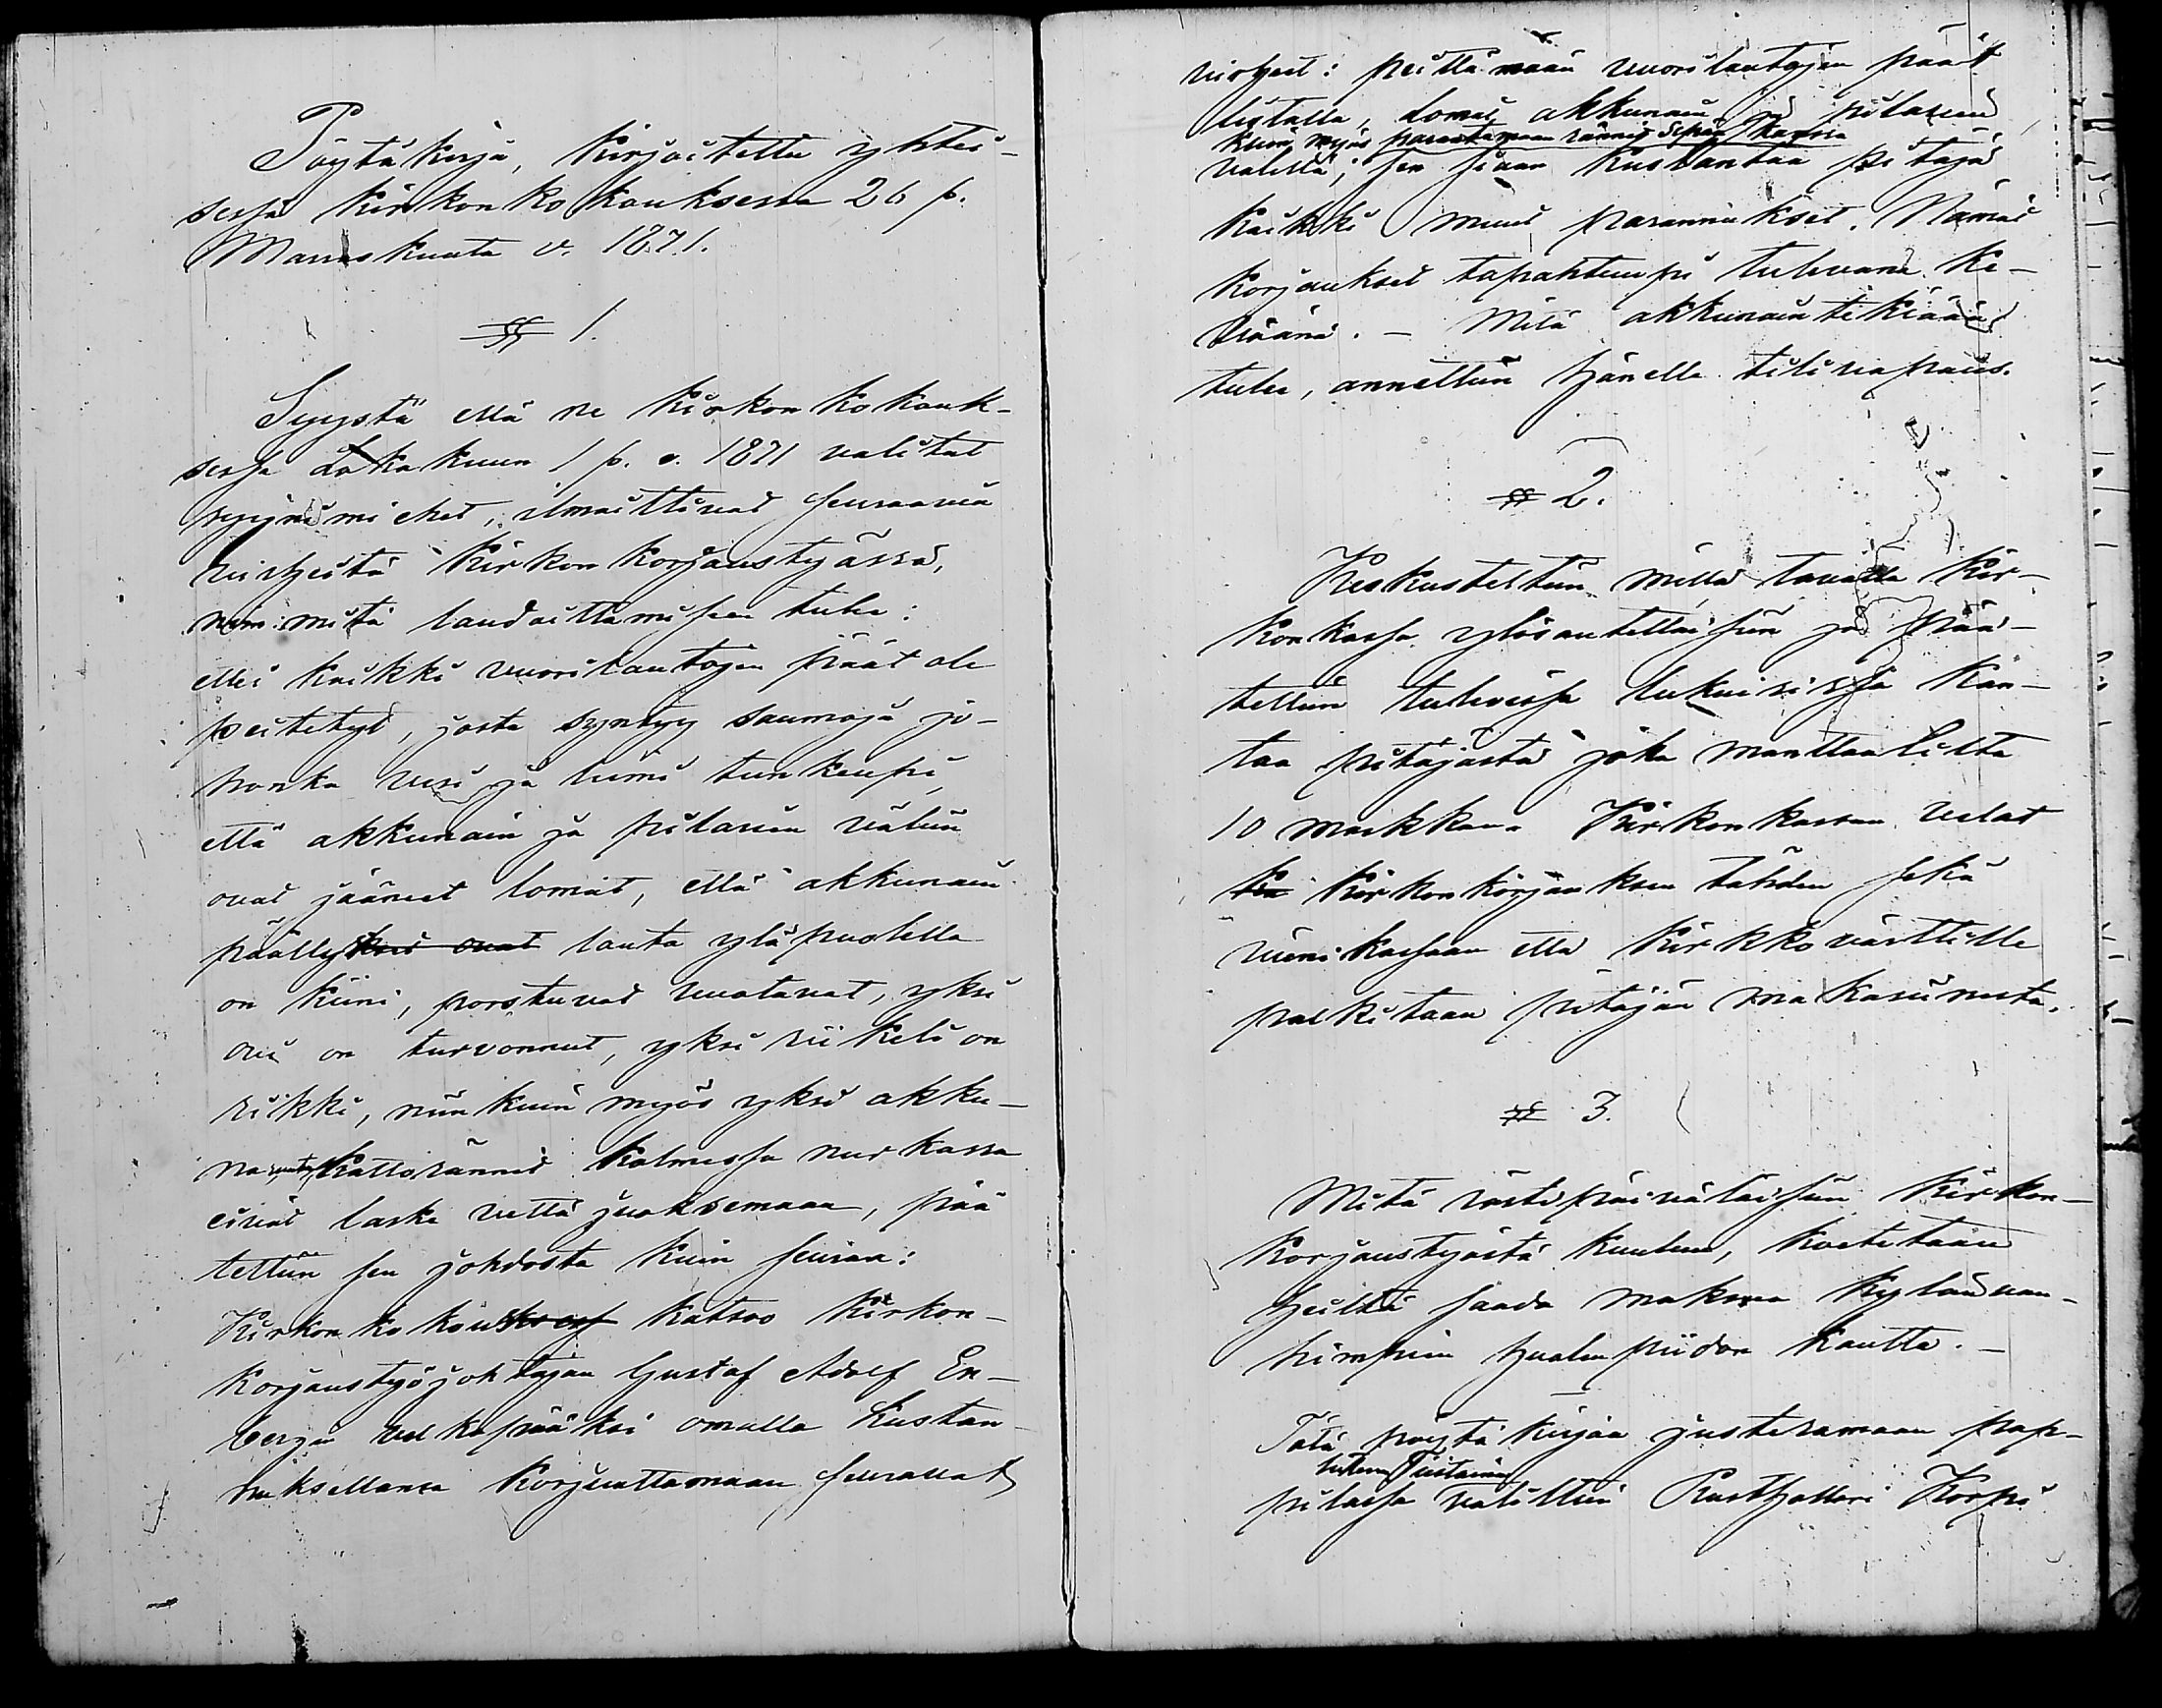 Pöytäkirja, kirjoitettu yhtei-
sessä kirkonkokouksessa 26 p.
Marraskuuta v. 1871.
§ 1.
Syystä että ne kirkonkokouk-
sessa Lokakuun 1 p. v. 1871 valitut
syynimiehet, ilmoittivat seuraavia
virheitä kirkon korjaustyössä,
nim: mitä laudoittamiseen tulee:
ettei kaikki vuorilautojen päät ole
peitetyt, josta syntyy saumoja jo-
honka vesi ja lumi tunkeupi,
että akkunain ja pilarien väliin
ovat jääneet lomat, että akkunain
päällys lauta yläpuolella
on kiini, porstuvat vuotavat, yksi
ovi on turvonnut, yksi riikeli on
rikki, niinkuin myös yksi akku-
na, kattorännit kolmessa nurkassa
eivät laske vettä juoksemaan, pää
tettiin sen johdosta kuin seuraa:
Kirkonkokous katsoo kirkon-
korjaustyöjohtajan Gustaf Adolf En-
bergin velkapääksi omalla kustan-
nuksellansa korjauttamaan seuraavat
virheet: peittämään vuorilautojen päät
listalla, lomat akkunain ja pilarein
kuin myös parantamaan rännit sepän kanssa
välillä; sen sivun kustantaa pitäjä
kaikki muut parannukset. Nämät
korjaukset tapahtuupi tulevana ke-
väänä. – Mitä akkunain tekiään
tulee, annettiin hänelle tilivapaus.
§ 2.
Keskusteltiin millä tavalla kir-
konkassa ylösautettaisiin ja pää-
tettiin tulevissa lukuisissa kan-
taa pitäjästä joka manttaalilta
10 markkaa. Kirkonkassan velat
kirkonkorjauksen tähden sekä
viinikassaan että kirkkovärttille
palkitaan pitäjän makasiinista.
§ 3.
Mitä rästipäiväläisiin kirkon-
korjaustyöstä kuuluu, koetetaan
heiltä saada maksua kylänvan-
himpien huolenpidon kautta. –
Tätä pöytäkirjaa justeeramaan pap-
tulevana Tiistaina
pilassa valittiin Rusthollari Korpi